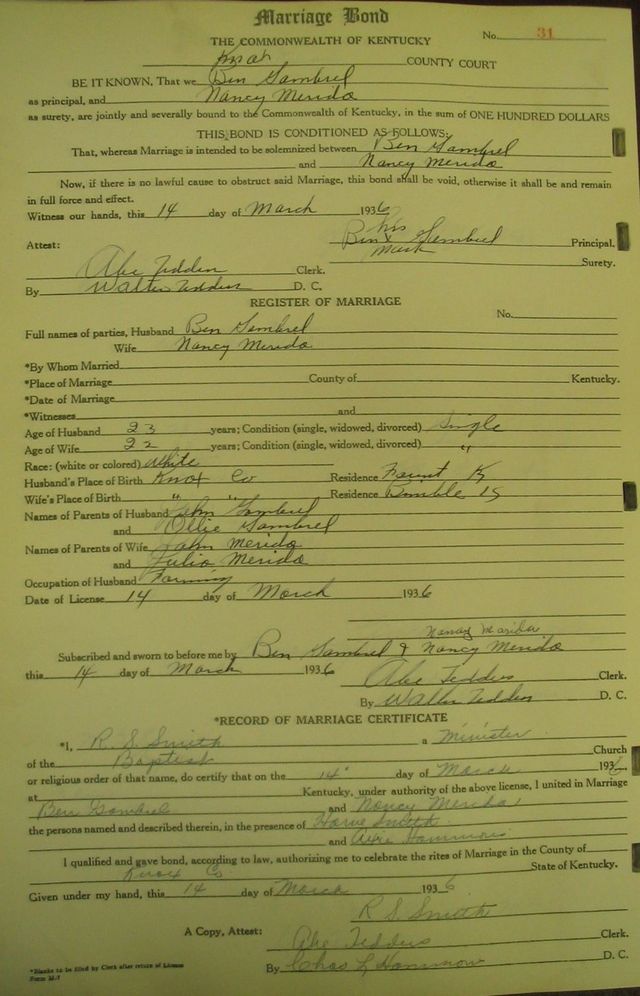 Marriage Bond
THE COMMONWEALTH OF KENTUCKY No. 31
Knox COUNTY COURT
BE IT KNOWN, That we Ben Gambrel
as principal, and Nancy Merida
as surety, are jointly and severally bound to the Commonwealth of Kentucky, in the sum of ONE HUNDRED DOLLARS
THIS BOND IS CONDITIONED AS FOLLOWS:
That, whereas Marriage is intended to be solemnized between Ben Gambrel
and Nancy Merida
Now, if there is no lawful cause to obstruct said Marriage, this bond shall be void, otherwise it shall be and remain
in full force and effect.
Witness our hands, this 14 day of March 1936
his
Attest: Ben x Gambrel Principal.
mark
Abe Tedders Clerk. Surety.
By Walter Tedders D. C.
REGISTER OF MARRIAGE
No.
Full names of parties, Husband Ben Gambrel
Wife Nancy Merida
*By Whom Married
*Place of Marriage County of Kentucky.
*Date of Marriage
*Witnesses and
Age of Husband 23 years; Condition (single, widowed, divorced) Single
Age of Wife 22 years; Condition (single, widowed, divorced) "
Race: (white or colored) White
Husband's Place of Birth Knox Co Residence Ky
Wife's Place of Birth " " Residence Bimble Ky
Names of Parents of Husband John Gambrel
and Ollie Gambrel
Names of Parents of Wife John Merida
and Julia Merida
Occupation of Husband Farming
Date of License 14 day of March 1936
Nancy Marida
Subscribed and sworn to before me by Ben Gambrel & Nancy Merida
this 14 day of March 1936 Abe Tedders Clerk.
By Walter Tedders D. C.
*RECORD OF MARRIAGE CERTIFICATE
*I, R. S. Smith a Minister
of the Baptist Church
or religious order of that name, do certify that on the 14" day of March 1936
at Kentucky, under authority of the above license, I united in Marriage
Ben Gambrel and Nancy Merida
the persons named and described therein, in the presence of Harve Smith
and Hammons
I qualified and gave bond, according to law, authorizing me to celebrate the rites of Marriage in the County of
Knox Co State of Kentucky.
Given under my hand, this 14 day of March 1936
R S. Smith
A Copy, Attest: Abe Tedders Clerk.
By Chas L Hammons D. C.
*Blanks to be filled by Clerk after return of License
Form M-7